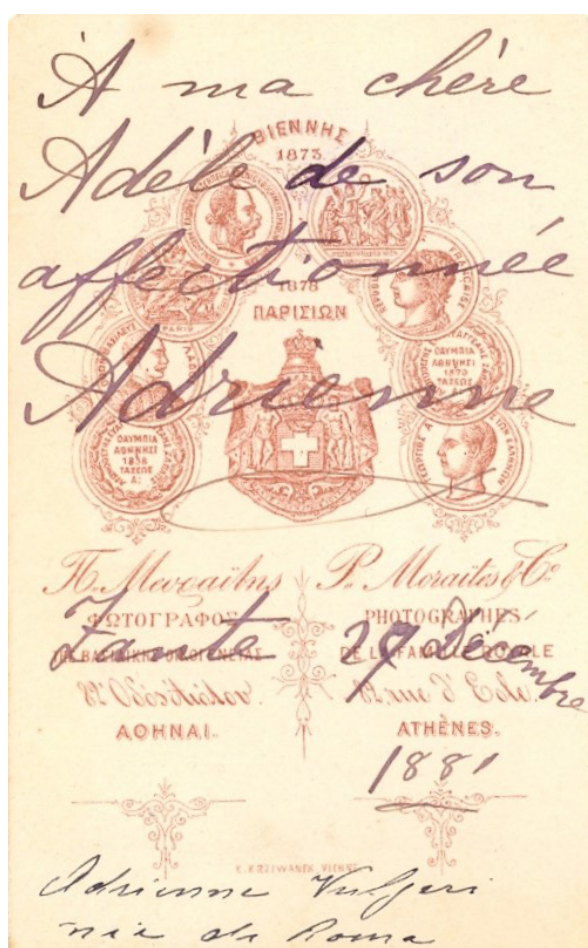 À ma chère
Adèle de son
affectionnée
Adrienne
Zante 29 Décembre
1881
ΒΙΕΝΝΗΣ
1873.
1878
ΠΑΡΙΣΙΩΝ
PARIS
ΟΛΥΜΠΙΑ
ΑΘΗΝΗΣΙ
1870
ΤΑΞΕΩΣ
ΟΛΥΜΠΙΑ
ΑΘΗΝΗΣΙ
ΤΑΞΕΩΣ
Α:
Π. Μωραΐτης
ΦΩΤΟΓΡΑΦΟΣ
ΤΗΣ ΒΑΣΙΛΙΚΗΣ ΟΙΚΟΓΕΝΕΙΑΣ
ΑΘΗΝΑΙ.
P. Moraïtes & Cº
PHOTOGRAPHES
DE LA FAMILLE ROYALE
82, rue d'Eole.
ATHÈNES.
VIENNE
Adrienne Vulgari
née de Roma